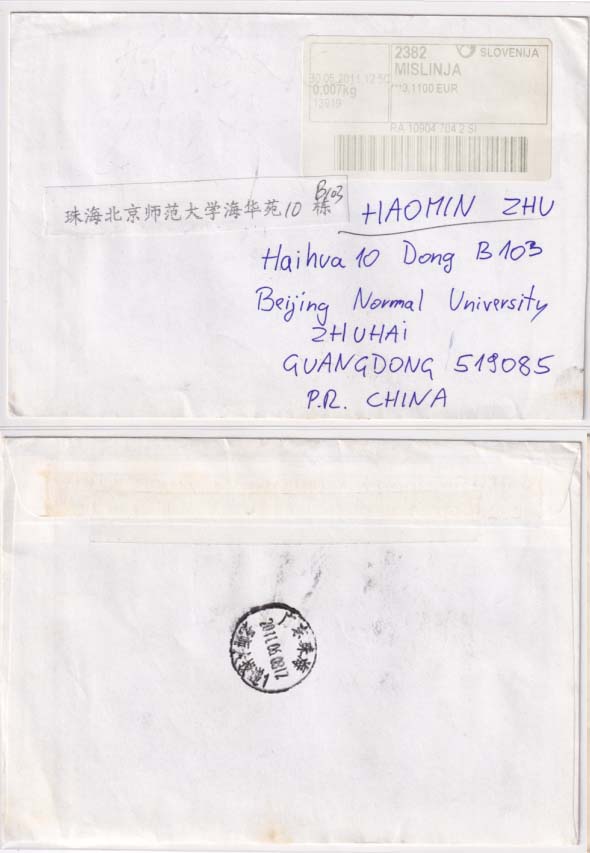 2382 SLOVENIJA
MISLINJA
30.05.2011 12:50
0,007kg
RA 10904 704 2 SI
B103
珠海北京师范大学海华苑10栋
HAOMIN ZHU
Haihua 10 Dong B 103
Beijing Normal University
ZHUHAI
GUANGDONG 519085
P.R. CHINA
广东珠海